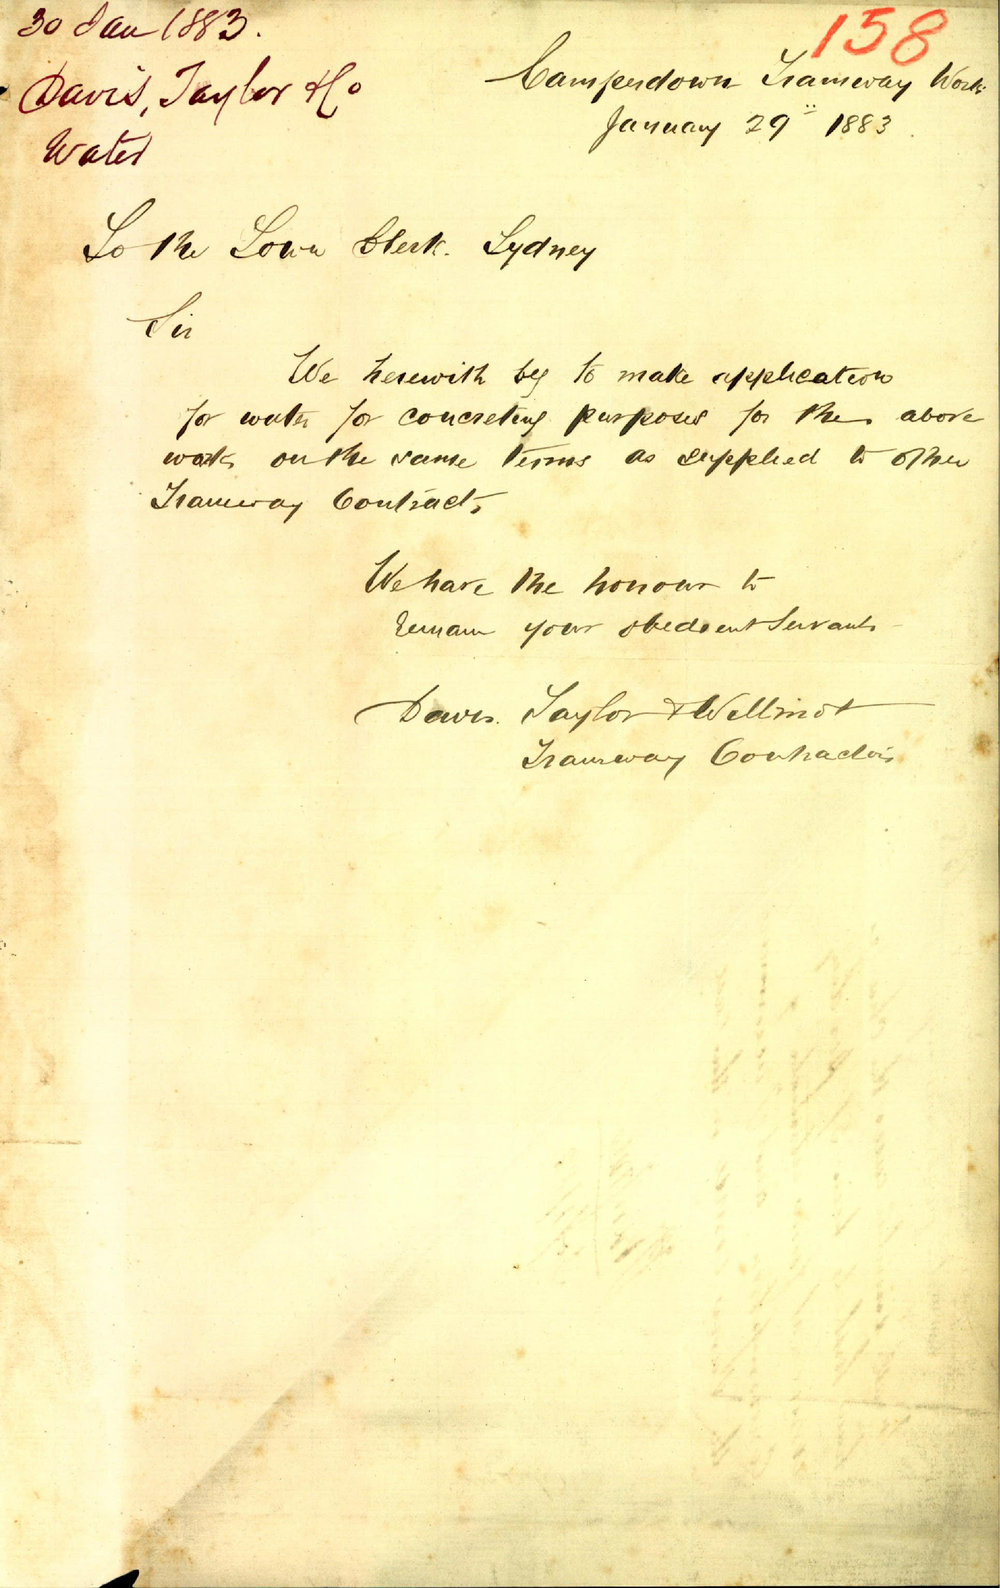 30 Jan 1883.
158
Davis, Taylor & Co
Water
Camperdown Tramway Works
January 29" 1883.
To the Town Clerk. Sydney
Sir
We herewith beg to make application
for water for concreting purposes for the above
works on the same terms as supplied to other
Tramway Contracts
We have the honour to
remain your obedient Servants
Davis. Taylor & Willmot
Tramway Contractors